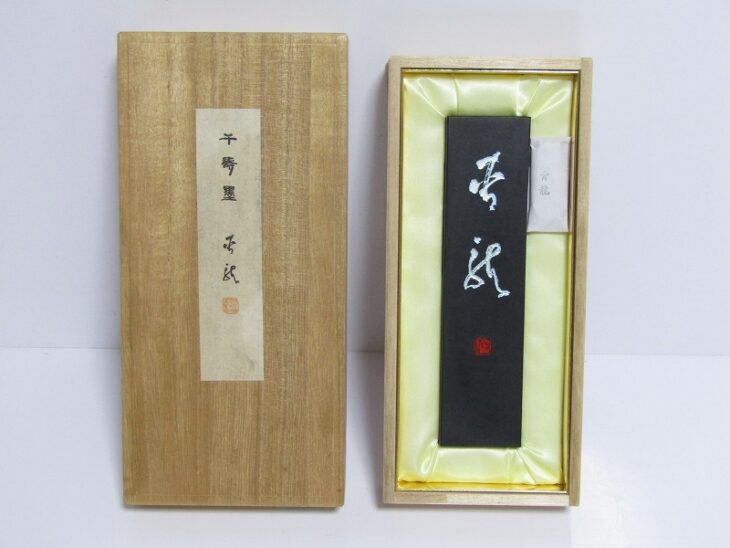 千壽墨
青龍
青龍
青龍